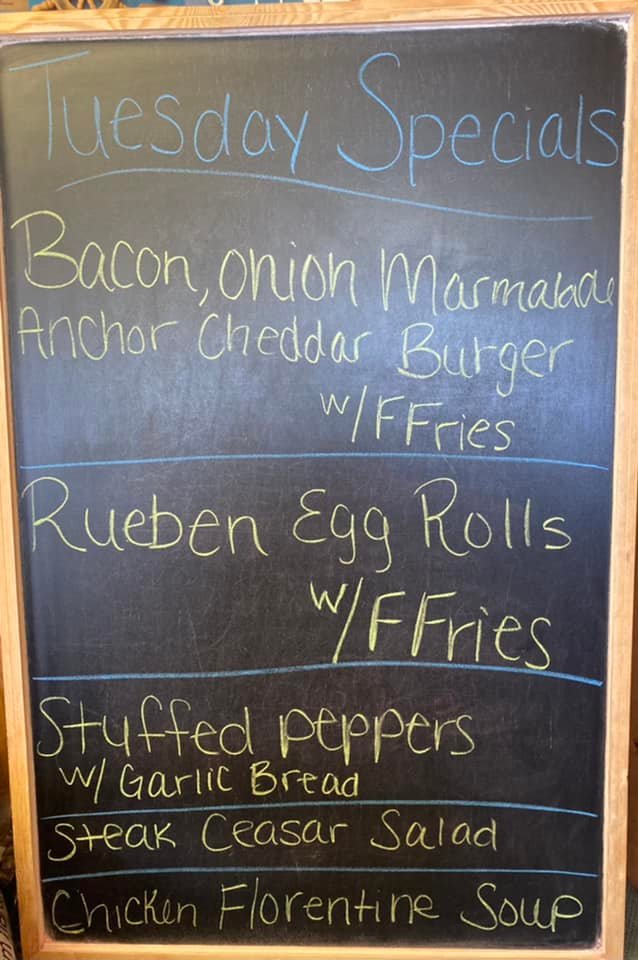 Tuesday Specials
Bacon, onion Marmalade
Anchor Cheddar Burger
w/FFries
Rueben Egg Rolls
w/FFries
Stuffed peppers
w/ Garlic Bread
Steak Ceasar Salad
Chicken Florentine Soup